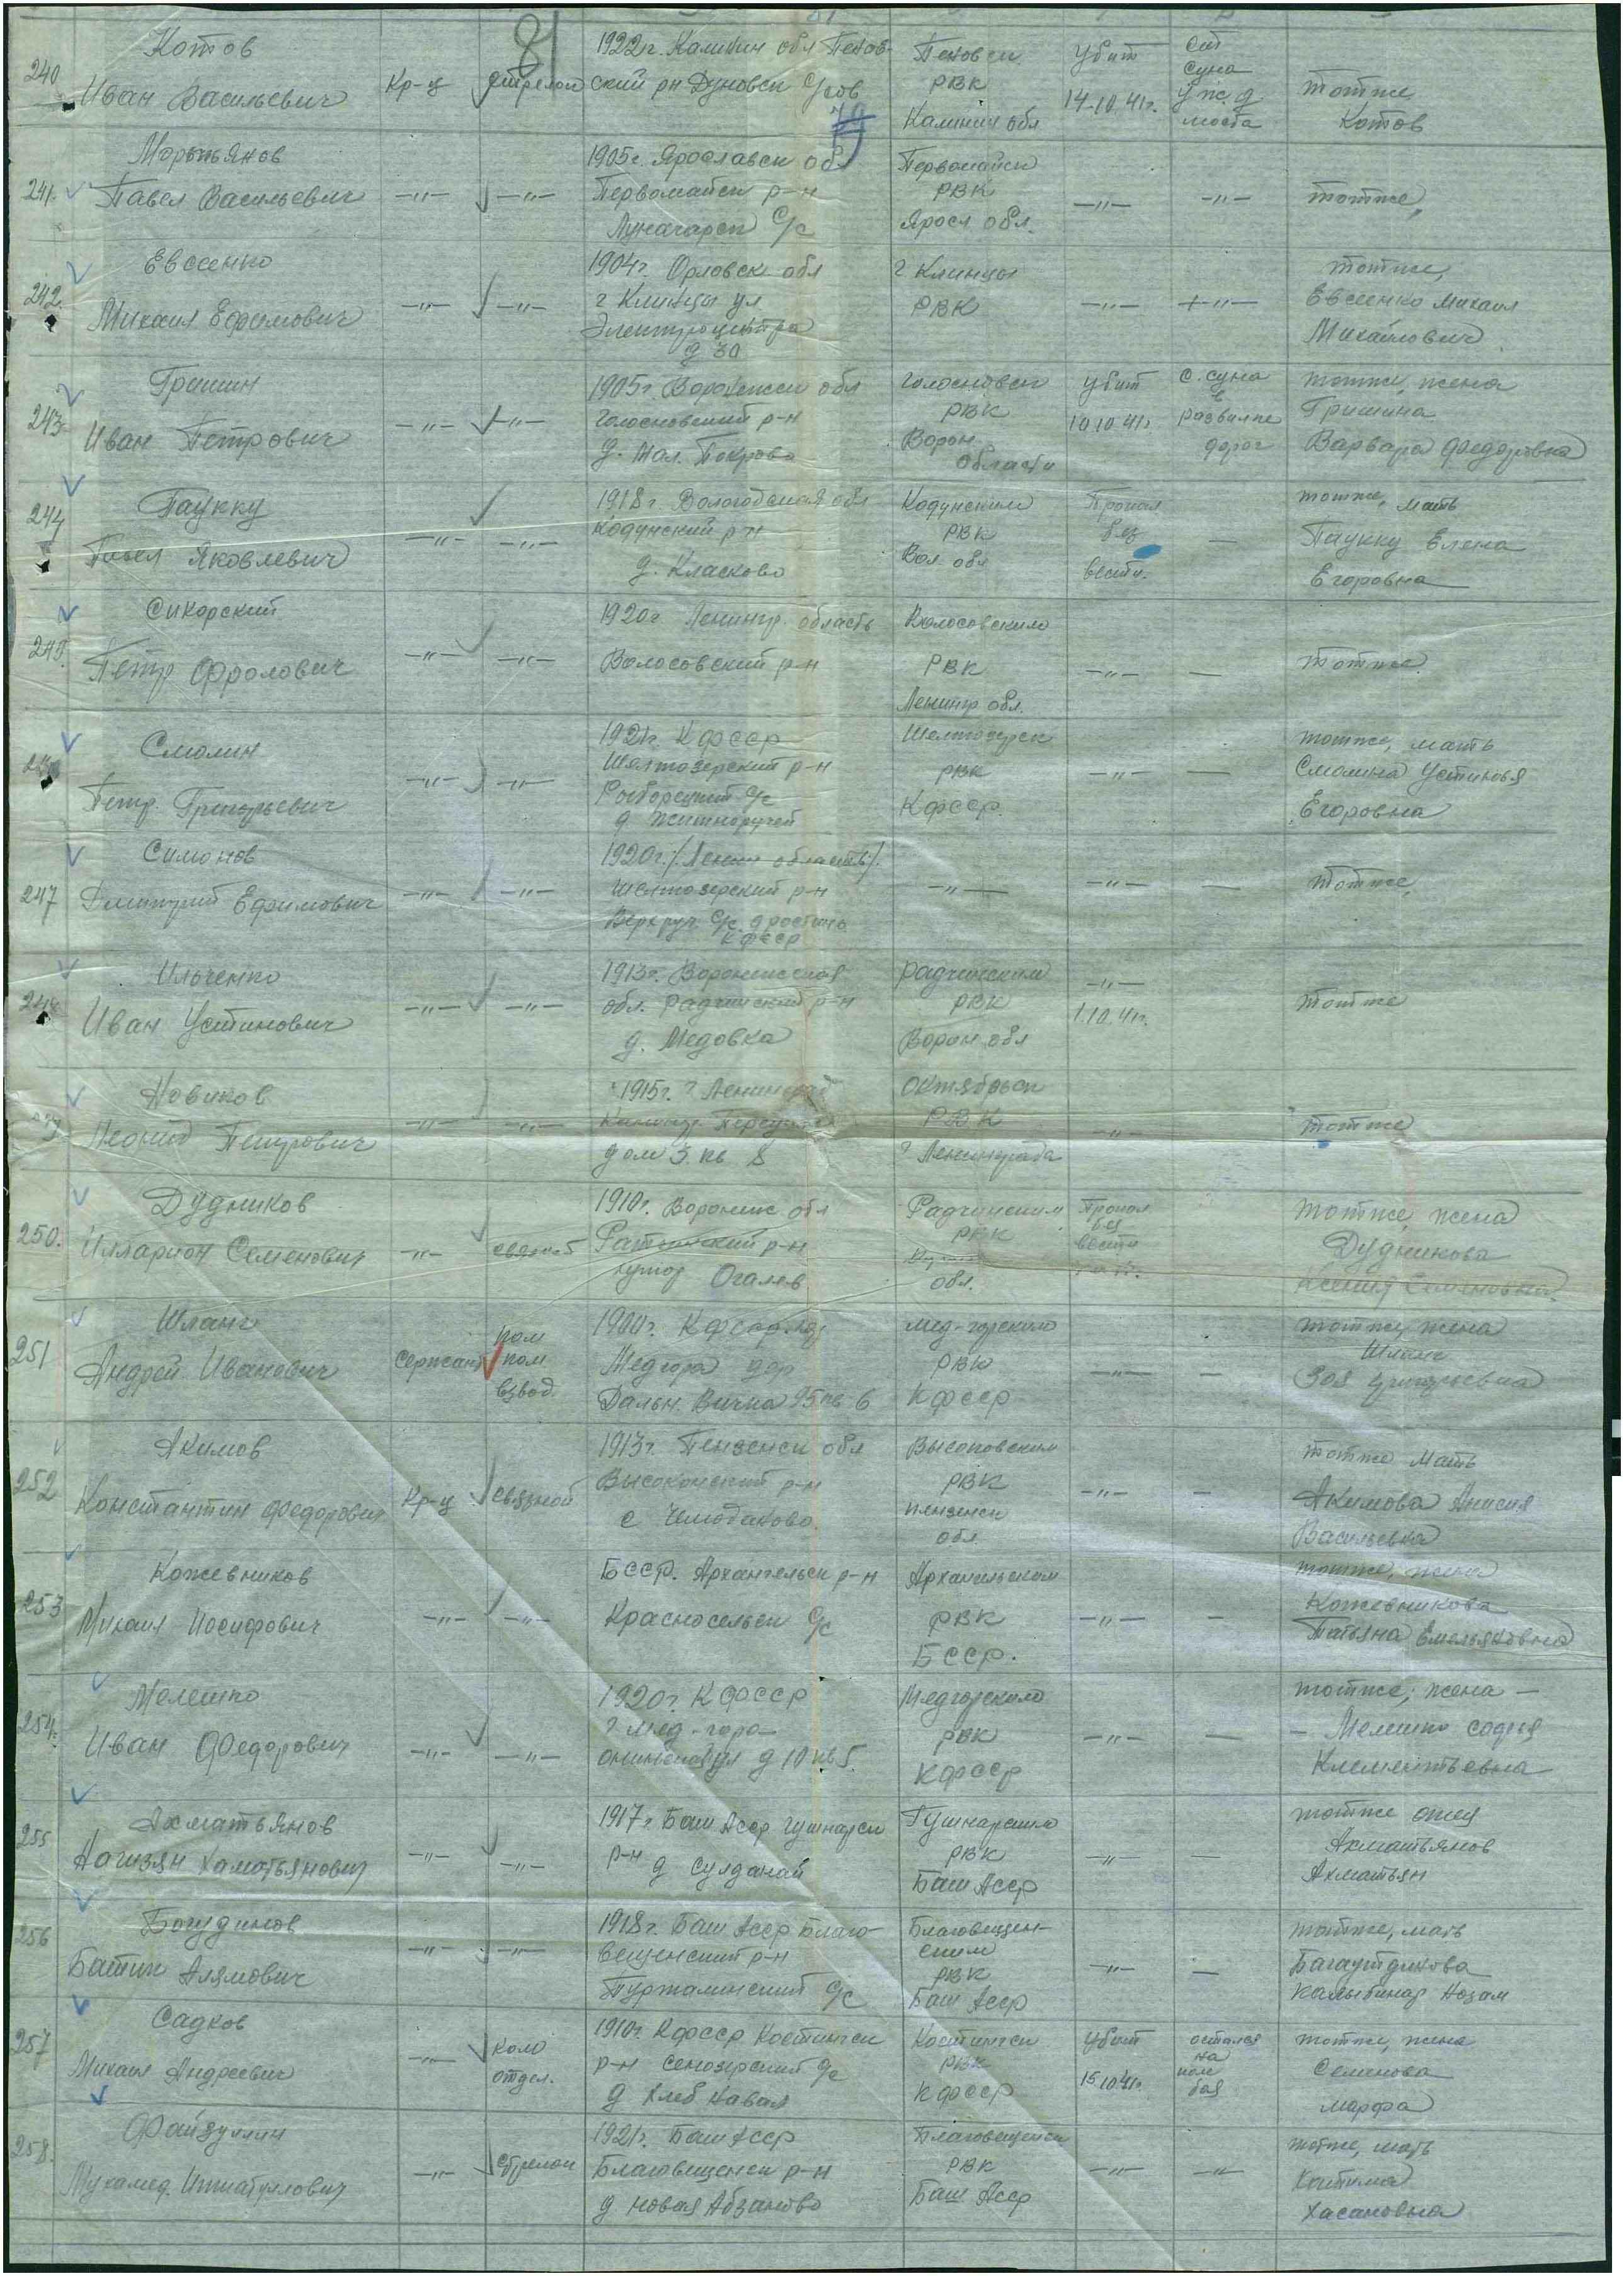 81
240 Котов
Иван Васильевич
Кр-ц
стрелок
1922г. Калинин обл Пенов-
ский рн Дуновск С/сов
Пеновск
РВК
Калинин обл
Убит
14.10.41г.
ст
Суна
у ж.д
моста
тотже
Котов
241. Мартьянов
Павел Васильевич
—"— —"—
1905г. Ярославск обл
Первомайск р-н
Луначарск С/с
Первомайск
РВК
Яросл обл.
—"— —"—
тотже
242. Евсеенко
Михаил Ефимович
—"— —"—
1904г. Орловск обл
г Клинцы ул
Электроцентра
д 30
г Клинцы
РВК
—"— —"—
тотже,
Евсеенко Михаил
Михайлович
243. Гришин
Иван Петрович
—"— —"—
1905г Воронежск обл
Голосновский р-н
д. Мал. Покровка
Голосновск
РВК
Ворон.
области
Убит
10.10.41г.
с. Суна
в
развилке
дорог
тотже, жена
Гришина
Варвара Федоровна
244 Паукку
Павел Яковлевич
—"— —"—
1918г. Вологодская обл
Кодунский р-н
д. Класково
Кодунским
РВК
Вол. обл
Пропал
без
вести.
—
тотже, мать
Паукку Елена
Егоровна
245. Сикорский
Петр Фролович
—"— —"—
1920г Ленингр. область
Волосовский р-н
Волосовским
РВК
Ленингр обл.
—"— —
тотже
Смолин
Петр. Григорьевич
—"— —"—
1921г. КФССР
Шелтозерский р-н
Рыборецкий С/с
д Житноручей
Шелтозерск
РВК
КФССР.
—"— —
тотже, мать
Смолина Устинья
Егоровна
247 Симонов
Дмитрий Ефимович
—"— —"—
1920г. /Ленин область/.
Шелтозерский р-н
Верхруч С/с. д ростино
КФССР
—"— —"— —
тотже
Ильченко
Иван Устинович
—"— —"—
1913г. Воронежская
обл. Радчинский р-н
д. Медовка
Радчинским
РВК
Ворон обл
—"—
1.10.41г.
тотже
Новиков
Леонид Петрович
—"— —"—
1915г. г Ленинград
дом 3. кв 8
Октябрьск
РВК
г Ленинграда
—"—
тотже
250. Дудников
Илларион Семенович
—"—
1910г. Воронеж обл
р-н
хутор Огалев
Радчинским
РВК
обл.
Пропал
без
вести
тотже, жена
Дудникова
Ксения Семеновна
251 Шланг
Андрей Иванович
Сержант
пом
ком
взвод.
1900г. КФССР
Медгора
Дальн. Вичка 95 кв 6
Мед-горским
РВК
КФССР
—"— —
тотже, жена
Шланг
Зоя Григорьевна
252 Акимов
Константин Федорович
Кр-ц
связной
1913г. Пензенск обл
Высоковский р-н
с Чемодановка
Высоковским
РВК
Пензенск
обл.
—"— —
тотже Мать
Акимова Анисия
Васильевна
253 Кожевников
Михаил Иосифович
—"— —"—
БССР. Архангельск р-н
Красносельск С/с
Архангельском
РВК
БССР.
—"— —
тотже, жена
Кожевникова
Татьяна Емельяновна
254. Мелешко
Иван Федорович
—"— —"—
1920г. КФССР
г Мед-гора
ул д 10 кв 5.
Медгорским
РВК
КФССР
—"— —
тотже, жена —
— Мелешко Софья
Клементьевна
255 Ахматьянов
Нагизян Хаматьянович
—"— —"—
1917г Баш Асср Кушнаренск
р-н д Султанай
РВК
Баш Асср
—"— —
тотже отец
Ахматьянов
Ахматьян
256 Богудинов
Батин Алямович
—"— —"—
1918г. Баш Асср Благо-
вещенский р-н
Туржалинский С/с
Благовещен-
ским
РВК
Баш Асср
—"— —
тотже, мать
Багаутдинова
257 Садков
Михаил Андреевич
—"—
Ком
отдел.
1910г. КФССР
р-н Сенозерский С/с
д
РВК
КФССР
Убит
15.10.41г.
остался
на
поле
боя
тотже, жена
Семенова
Марфа
258. Файзуллин
Мухамед.
—"—
стрелок
1921г. Баш Асср
Благовещенск р-н
д Новая Абзаново
Благовещенск
РВК
Баш Асср
—"— —"—
тотже, мать
Хатима
Хасановна